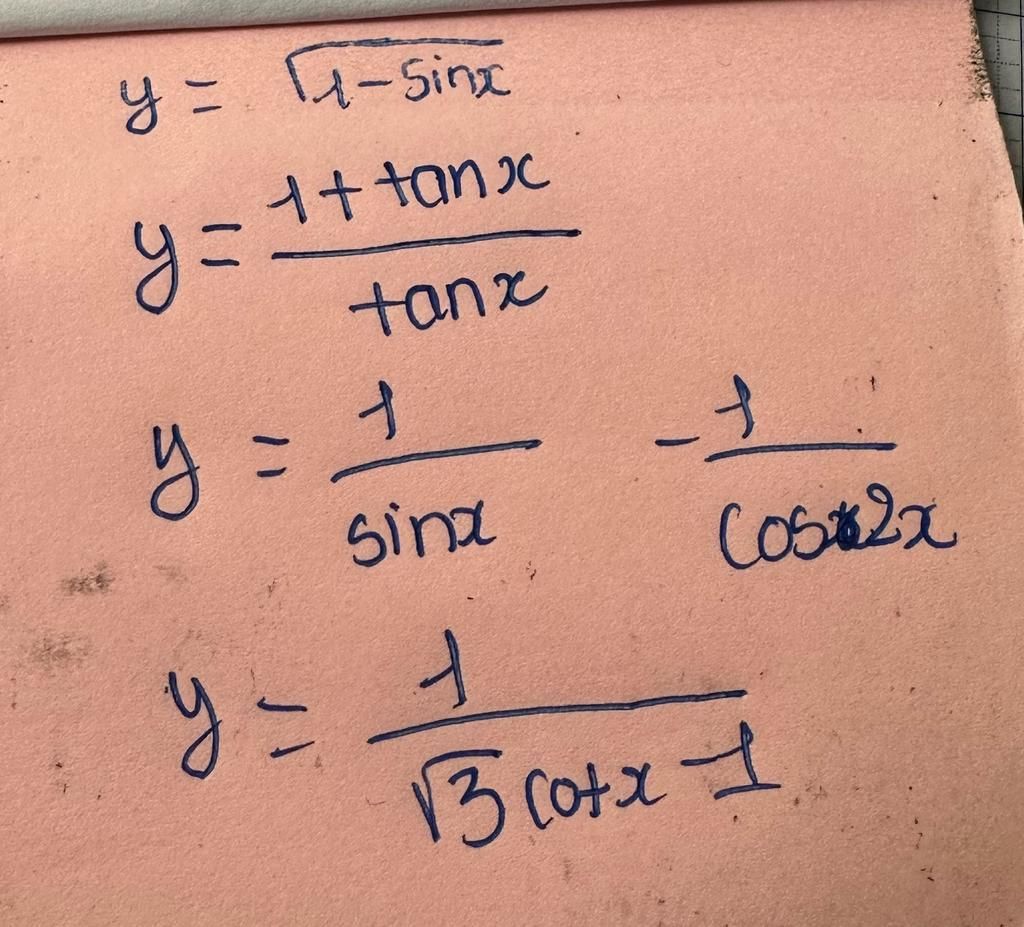 y = √1-sinx
y = 1 + tanx / tanx
y = 1 / sinx - 1 / cos2x
y = 1 / √3 cotx - 1